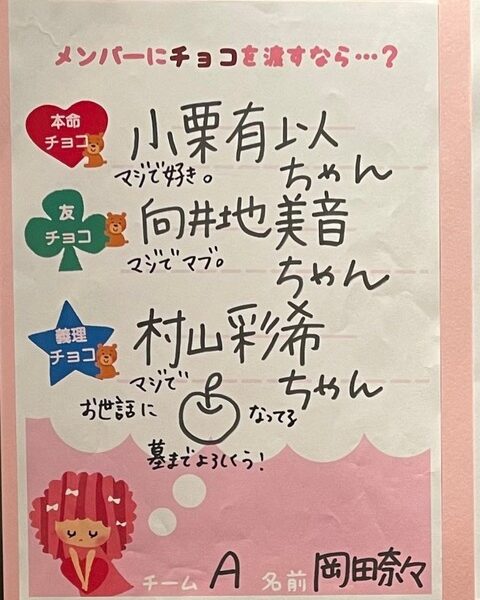 メンバーにチョコを渡すなら…？
本命
チョコ
小栗有以
マジで好き。
ちゃん
友
チョコ
向井地美音
マジでマブ。
ちゃん
義理
チョコ
村山彩希
マジで
ちゃん
お世話に
なってる
墓までよろしくう！
チーム A 名前 岡田奈々